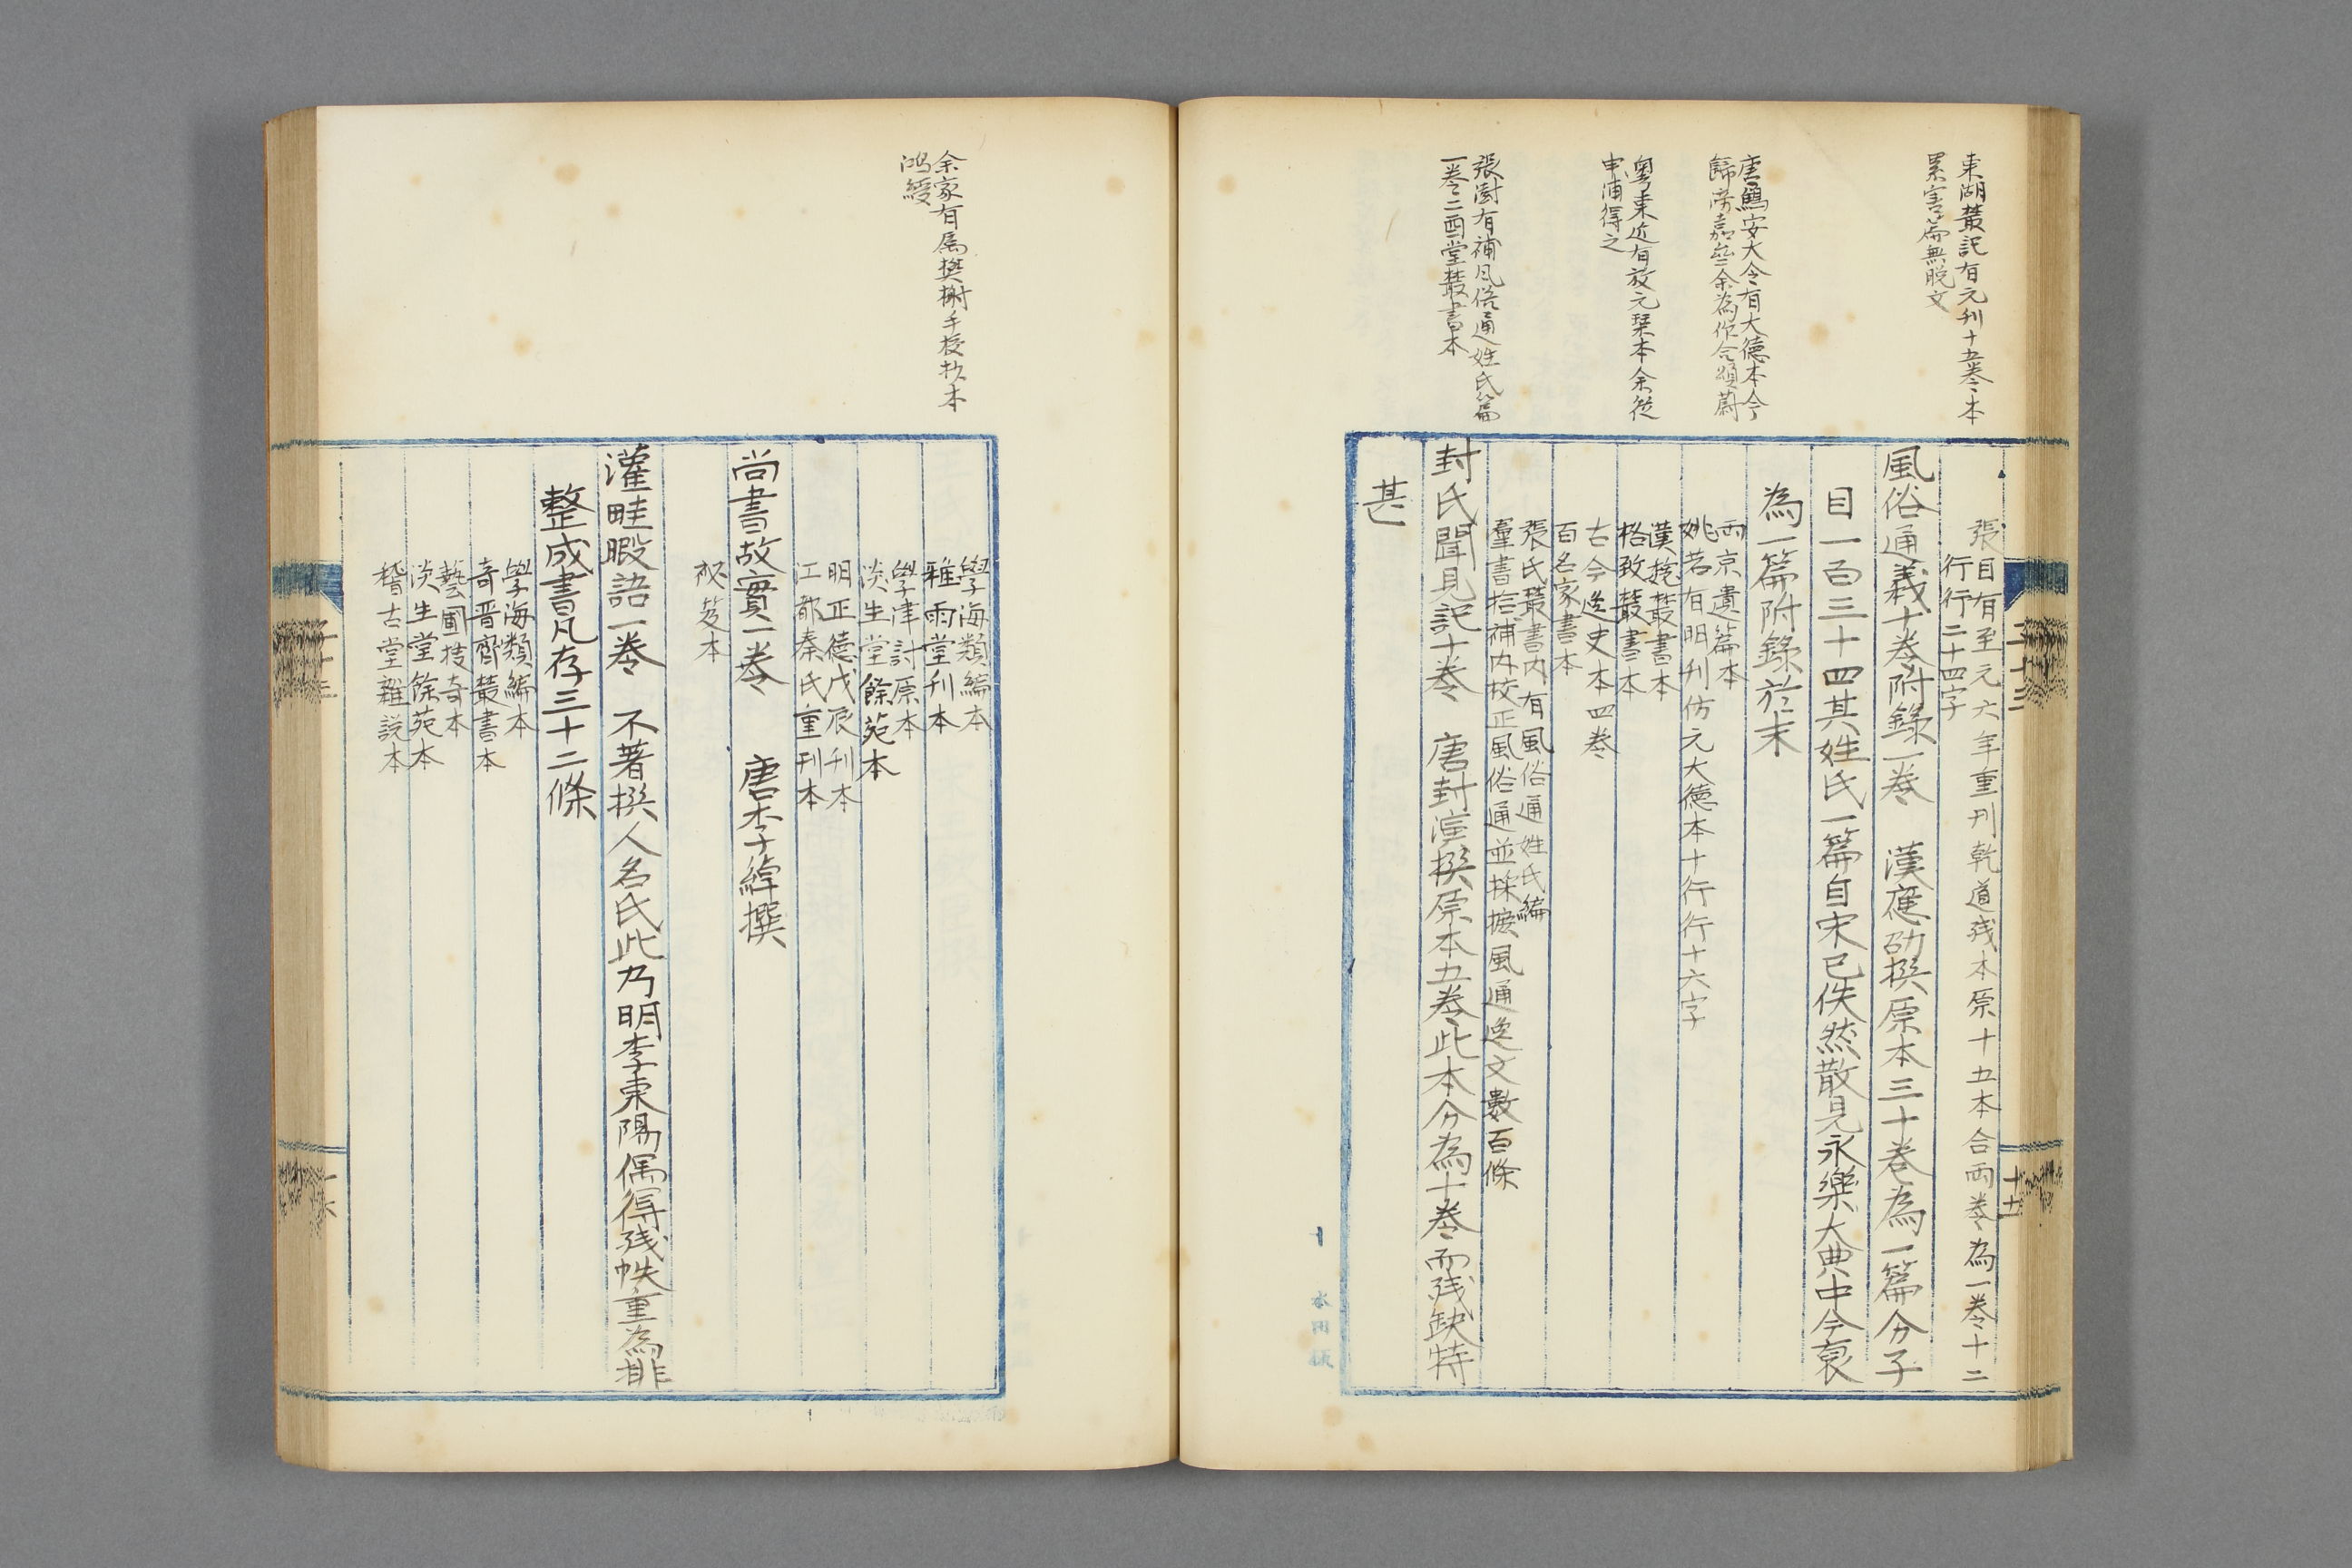 東湖叢記有元刊十五卷本
累害篇無脫文
唐鷦安大令有大德本今
歸
粵東近有放元槧本余從
申浦得之
張澍有補風俗通姓氏篇
一卷二酉堂叢書本
張目有至元六年重刊乾道殘本原十五本合兩卷為一卷十二
行行二十四字
風俗通義十卷附錄一卷 漢應劭撰原本三十卷為一篇分子
目一百三十四其姓氏一篇自宋已佚然散見永樂大典中今裒
為一篇附錄於末
兩京遺篇本
姚若有明刊仿元大德本十行行十六字
漢魏叢書本
格致叢書本
古今逸史本四卷
百名家書本
張氏叢書內有風俗通姓氏編
羣書拾補內校正風俗通並採摭風通逸文數百條
封氏聞見記十卷 唐封演撰原本五卷此本分為十卷而殘缺特
甚
二十三
十五
余家有屬樊榭手校抄本
鴻綬
學海類編本
雅雨堂刊本
學津討原本
淡生堂餘苑本
明正德戊辰刊本
江都秦氏重刊本
尚書故實一卷 唐李綽撰
祕笈本
灌畦暇語一卷 不著撰人名氏此乃明李東陽偶得殘帙重為排
整成書凡存三十二條
學海類編本
奇晉齋叢書本
藝圃搜奇本
淡生堂餘苑本
稽古堂雜說本